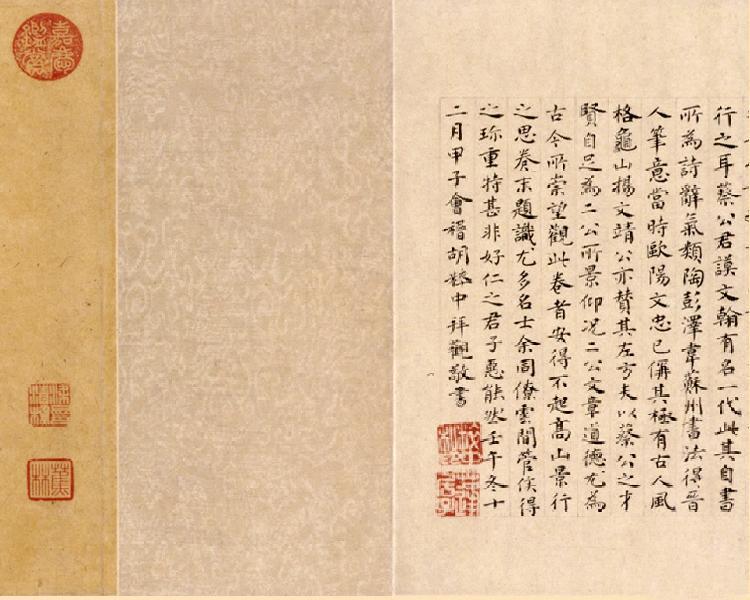 行之耳蔡公君謨文翰有名一代此其自書
所為詩辭氣類陶彭澤韋蘇州書法得晉
人筆意當時歐陽文忠已僃其極有古人風
格龜山揚文靖公亦賛其左方夫以蔡公之才
賢自足為二公所景仰况二公文章道德尤為
古今所崇望觀此卷者安得不起高山景行
之思卷末題識尤多名士余同僚雲間管侯得
之珎重特甚非好仁之君子惡能然壬午冬十
二月甲子會稽胡粹中拜觀敬書
嘉慶鑑賞
蕉林